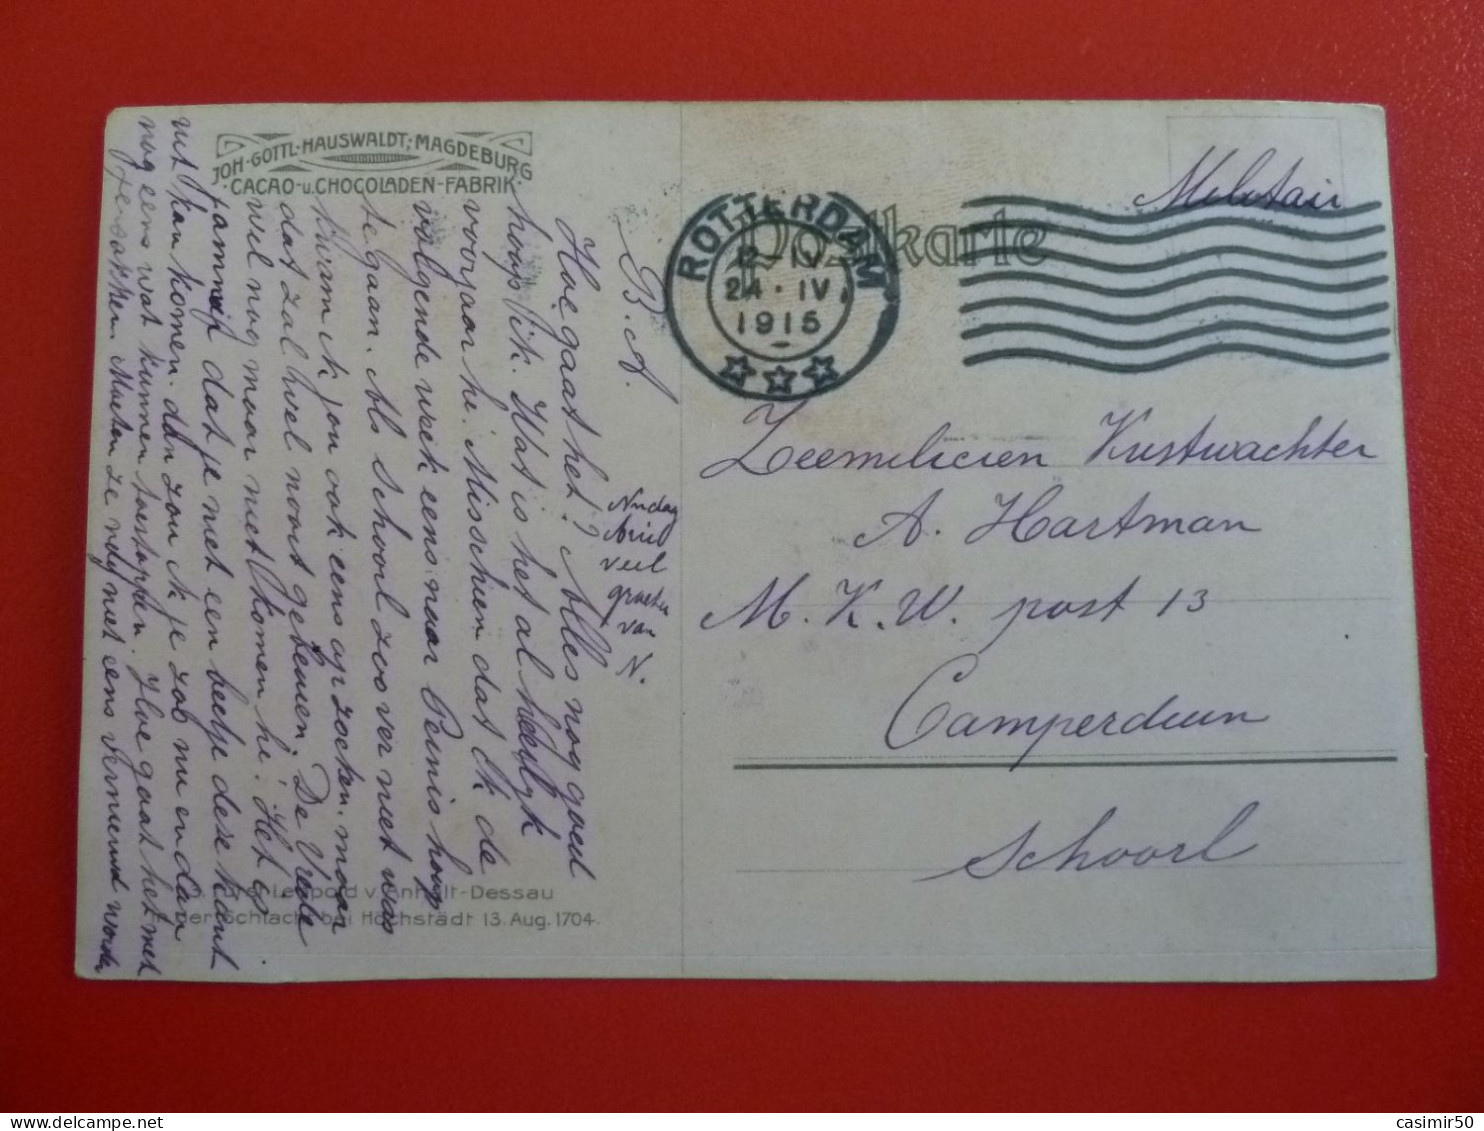 JOH·GOTTL·HAUSWALDT·MAGDEBURG
·CACAO-u.CHOCOLADEN-FABRIK·
Postkarte
Militair
ROTTERDAM
12-IV
24·IV
1915
Zeemilicien Kustwachter
A. Hartman
M. K. W. post 13
Camperduin
Schoorl
B. A.
Hoe gaat het? Alles nog goed
hoop ik. Wat is het al heerlijk
voorjaar he. Misschien dat ik de
volgende week eens naar Pernis hoop
te gaan. Als Schoorl zoo ver niet was
kwam ik jou ook eens opzoeken. maar
dat zal wel nooit gebeuren. De
wel nog maar niet komen he. Het is
jammer dat je met een beetje deze kant
uit kan komen. dan zou ik je zoo nu en dan
nog eens wat kunnen toestoppen. Hoe gaat het met
je sokken. Moeten ze nog niet eens vernieuwd worden
veel
groeten
van
N.
Leopold v. Anhalt-Dessau
der Schlacht bei Höchstädt 13. Aug. 1704.
casimir50